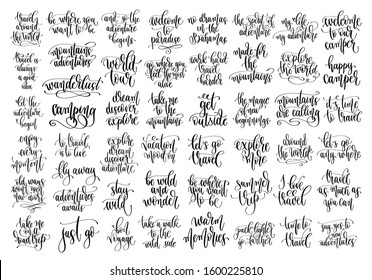 travel
around
the world
be where
you want
to be
and so the
adventure
begins
welcome
to
paradise
no dramas
in the
Bahamas
the spirit of
adventure
my life
my adventure
welcome
to our
camper
travel
is always
a good
idea
mountains
adventures
world
tour
go where you
feel the
most
alive
work hard
travel
harder
made for
the
mountains
explore
the world
happy
camper
let the
adventure
begin
wanderlust
camping
dream
discover
explore
take me
to the
mountains
get
outside
the magic of
new
beginnings
mountains
are calling
it's time
to
travel
enjoy
every
moment
to travel
is to live
explore
dream
discover
adventure
vacation
mood on
let's go
travel
explore
more
around
the world
let's go
anywhere
fly away
adventures
awaits
stay
wild
be wild
and
wonder
be where
you want
to be
summer
trip
I love
travel
travel
as much as
you can
take me
on a
road trip
just go
bon
voyage
take a walk
to the
wild side
warm
memories
time to
travel
say yes to
new
adventures
1600225810